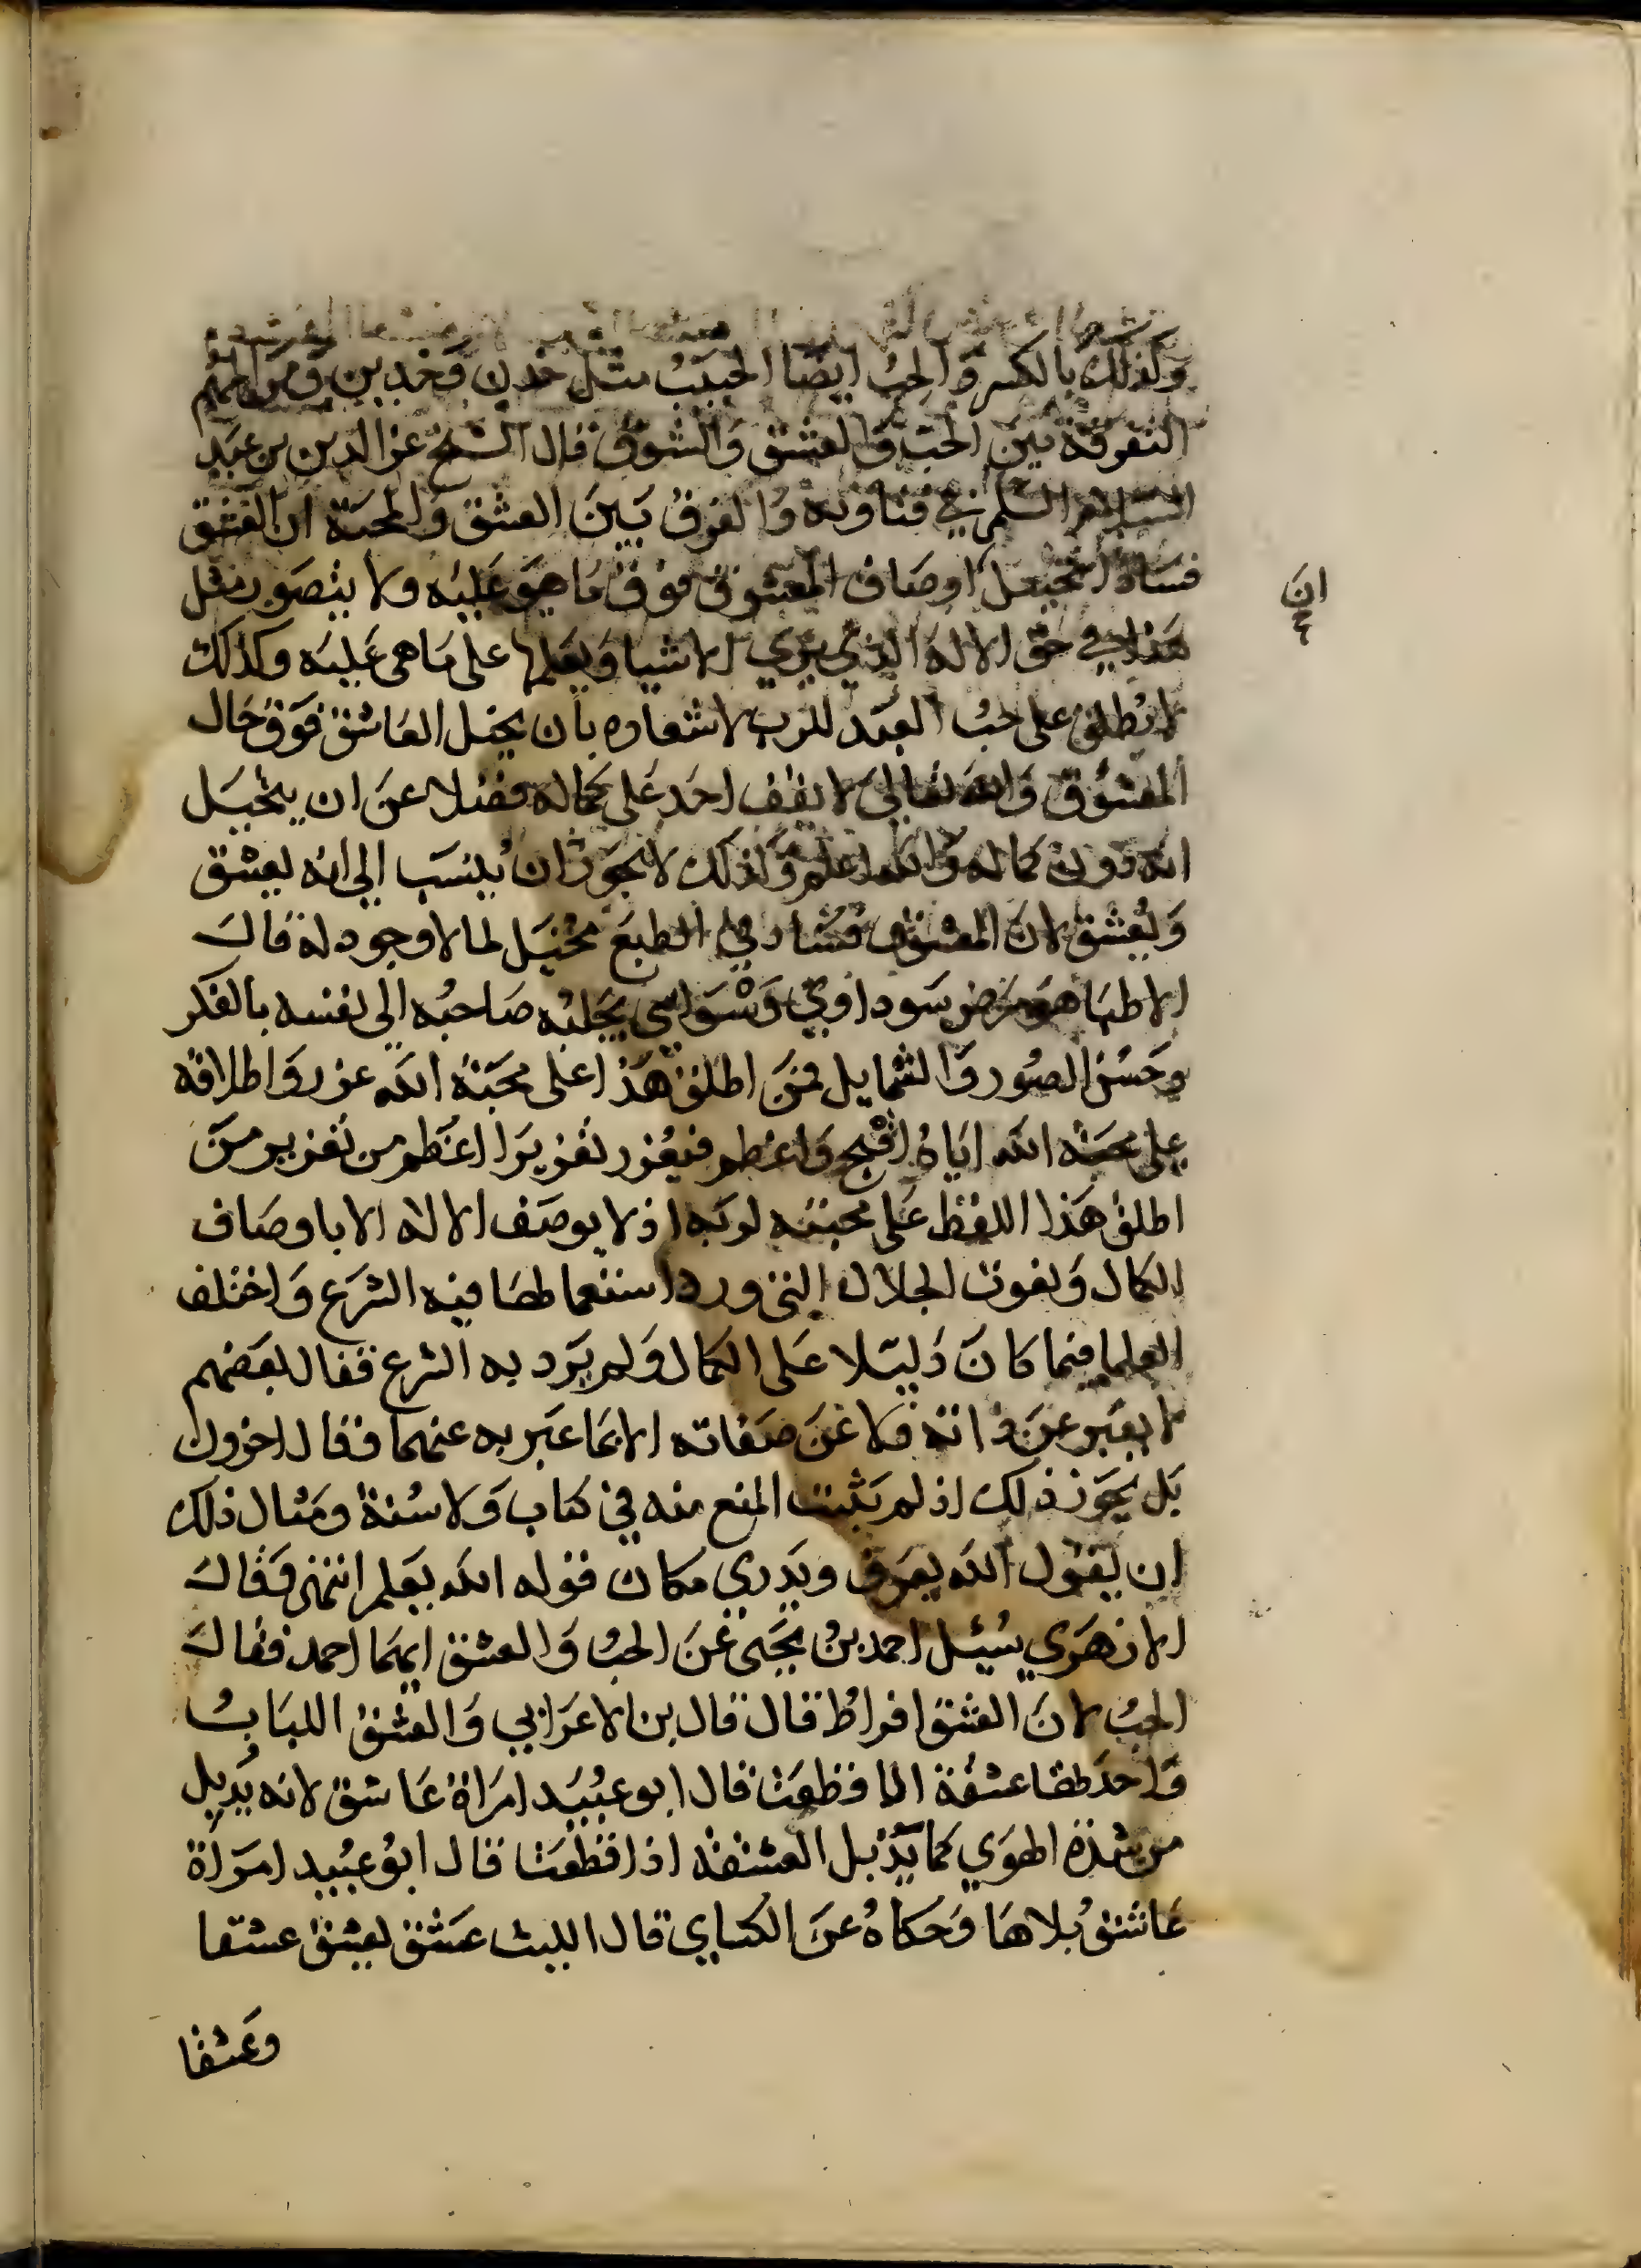 وكذلك بالكسر والحِبُ ايضا الحَبيبُ مثل خدن وخدين ومن المهم
التفرقة بين الحب والعشق والشوق قال الشيخ عز الدين بن عبد
السلام السلمي في فتاويه والفرق بَين العشق والمحبة ان العشق
فساد تخيل اوصاف المعشوق فوق ما هو عليه ولا يتصور مثل
ان
هذا في حق الاله الذي يري الاشيا ويعلمها على ما هى عليه وكذلك
لا يُطلق على حبُ العبد للرب لاشعاره بان يخيل العاشق فوق حال
المعشوق والله تعالى لا يقف احد على كماله فضلا عن ان يتخيل
انه دون كماله والله اعلم وكذلك لا يجوز ان يُنسب إلى انه يعشق
ويُعشق لان المعشوق فسَاد في الطبع مخيَل لما لا وجود له قال
الاطبا هو مرض سوداوي وَسْوَاسي يجلبه صاحبُه الى نفسه بالفكر
وحَسْن الصُور والشمايل فمَن اطلق هَذا على محبَة الله عزر واطلاقه
على محبَة الله ايَاهُ اقْبح واعظم فيُعزر تعزيرَا اعَظم من تعزير مَن
اطلق هَذا اللفظ عَلى محبته لربَه اذ لا يوصَف الاله الا باوصَاف
الكمال ونعوت الجلال التى ورد استعمالهَا فيه الشرَع واختلف
العلما فيما كانَ دَليَلا عَلى الكمال وَلم يَرد به الشرع فقال بعَضهم
لا يعبَر عَن ذاته ولا عَن صَفاته الا بمَا عَبر به عنهما وقال اخرون
بَل يجَوز ذلك اذ لم يَثبت المنع منه في كتاب وَلا سُنة ومَثال ذلك
ان يَقول الله يعرف ويَدري مكان قوله الله يَعلم انتهى وَقال
الازهَري سُئل احمد بنُ يحَيى عَن الحبُ والعشق ايهمَا احمد فقال
الحبُ لانَ العشق افراطُ قال قال بن الاعرَابي وَالعشقُ اللبلابُ
وَاحدَتها عشقة اذا قطعَت قال ابو عبُيَد امرَاة عَاشق لانه يُذبل
من شدة الهوَي كما يَذبل العشقة اذا قطعَت قال ابوُ عُبيد امرَاة
عَاشقُ بلا هَا وَحكاهُ عنَ الكساي قال الليث عَشق يعشق عشقا
وعَشقا